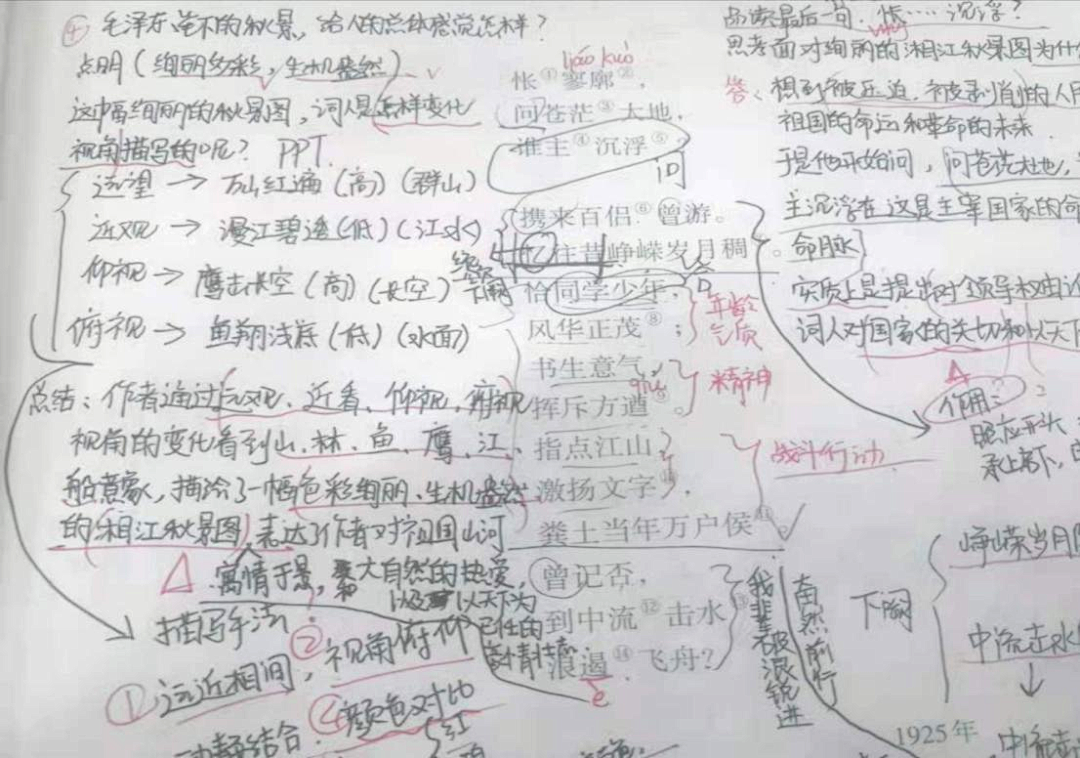 ④ 毛泽东笔下的秋景，给人的总体感觉怎样？
点明（绚丽多彩，生机盎然）
这幅绚丽的秋景图，词人是怎样变化
视角描写的呢？ PPT.
远望 → 万山红遍（高）（群山）
近观 → 漫江碧透（低）（江水）
仰视 → 鹰击长空（高）（长空）
俯视 → 鱼翔浅底（低）（水面）
总结：作者通过远观、近看、仰视、俯视
视角的变化看到山、林、鱼、鹰、江、
船意象，描绘了一幅色彩绚丽、生机盎然
的湘江秋景图，表达了作者对祖国山河
寓情于景，和大自然的热爱，
以及以天下为
己任的
豪情壮志
描写手法
① 远近相间，
② 视角俯仰
④ 颜色对比
动静结合
红
liáo kuò
怅①寥廓②，
问苍茫③大地，
谁主④沉浮⑤？
问
携来百侣⑥曾游。
忆往昔峥嵘岁月稠⑦。
恰同学少年，
风华正茂⑧；
年龄
气质
书生意气，
qiú
挥斥方遒⑨。
精神
指点江山，
激扬文字⑩，
战斗行动
粪土当年万户侯⑪。
曾记否，
到中流⑫击水⑬，
浪遏⑭飞舟？
è
我辈破浪锐进
奋然前行
1925年
品读最后一句，怅……沉浮？
思考面对绚丽的湘江秋景图为什
答、想到被压迫、被剥削的人
祖国的命运和革命的未来.
于是他开始问，问苍茫大地，
主沉浮在这是主宰国家的命
命脉
实质上是提出对领导权由
词人对国家的关切和以天下
作用：
照应开头
承上启下，
下阕
峥嵘岁月
中流击水
↓